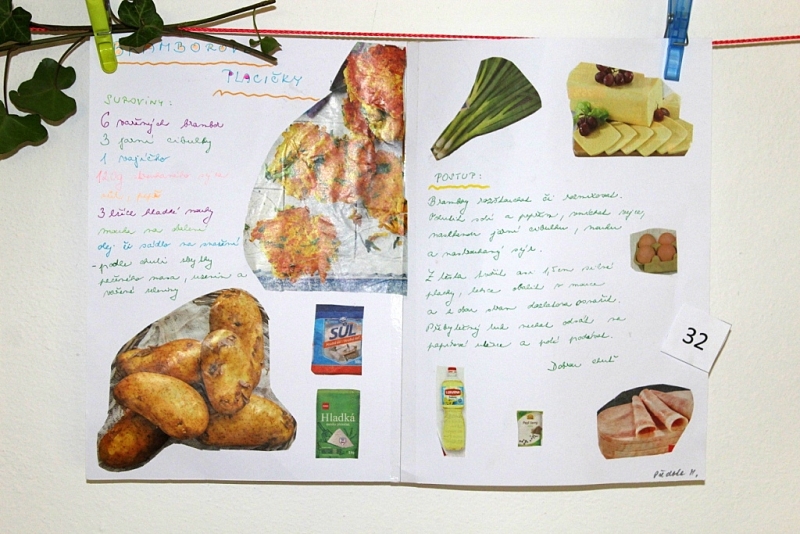 BRAMBOROVÉ
PLACIČKY
SUROVINY:
6 vařených brambor
3 jarní cibulky
1 vajíčko
120g sýra
sůl, pepř
3 lžíce hladké mouky
mouka na obalení
olej či sádlo na smažení
- podle chuti zbytky
pečeného masa, uzenin a
vařené zeleniny
SŮL
Hladká
POSTUP:
Brambory rozšťouchat či rozmixovat.
Ochutit solí a pepřem, vmíchat vejce,
nasekanou jarní cibulku, mouku
a nastrouhaný sýr.
Z těsta tvořit asi 1,5cm silné
placky, lehce obalit v mouce
a z obou stran dozlatova osmažit.
Přebytečný tuk nechat odsát na
papírové utěrce a poté podávat.
Dobrou chuť
32